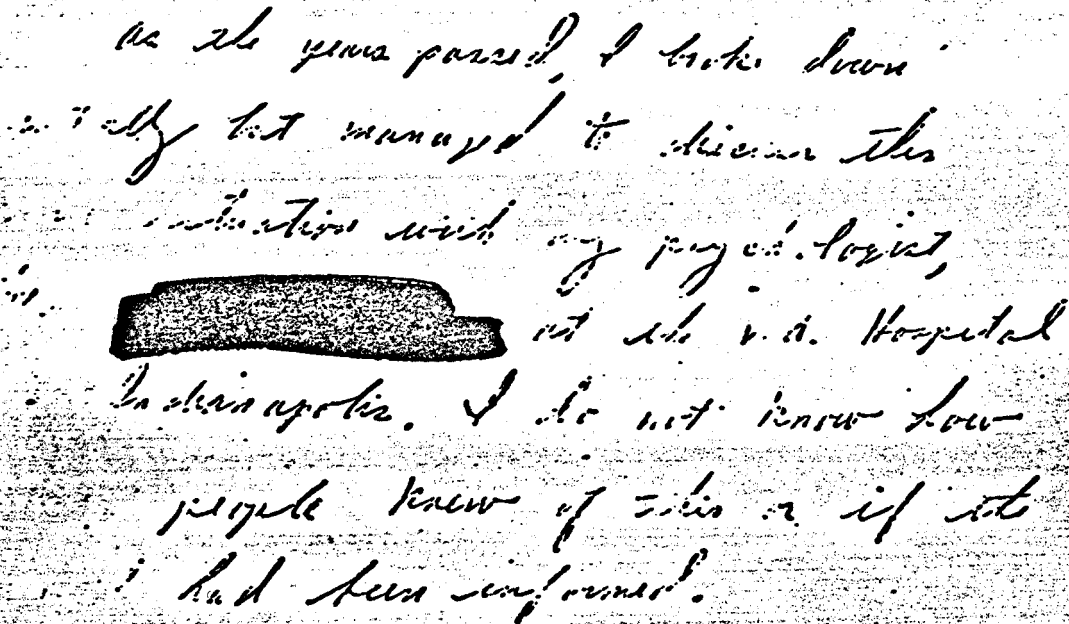 as the years passed, I broke down
but managed to discuss this
situation with my psychologist,
at the V.A. Hospital
Indianapolis. I do not know how
people knew of this or if the
had been informed.